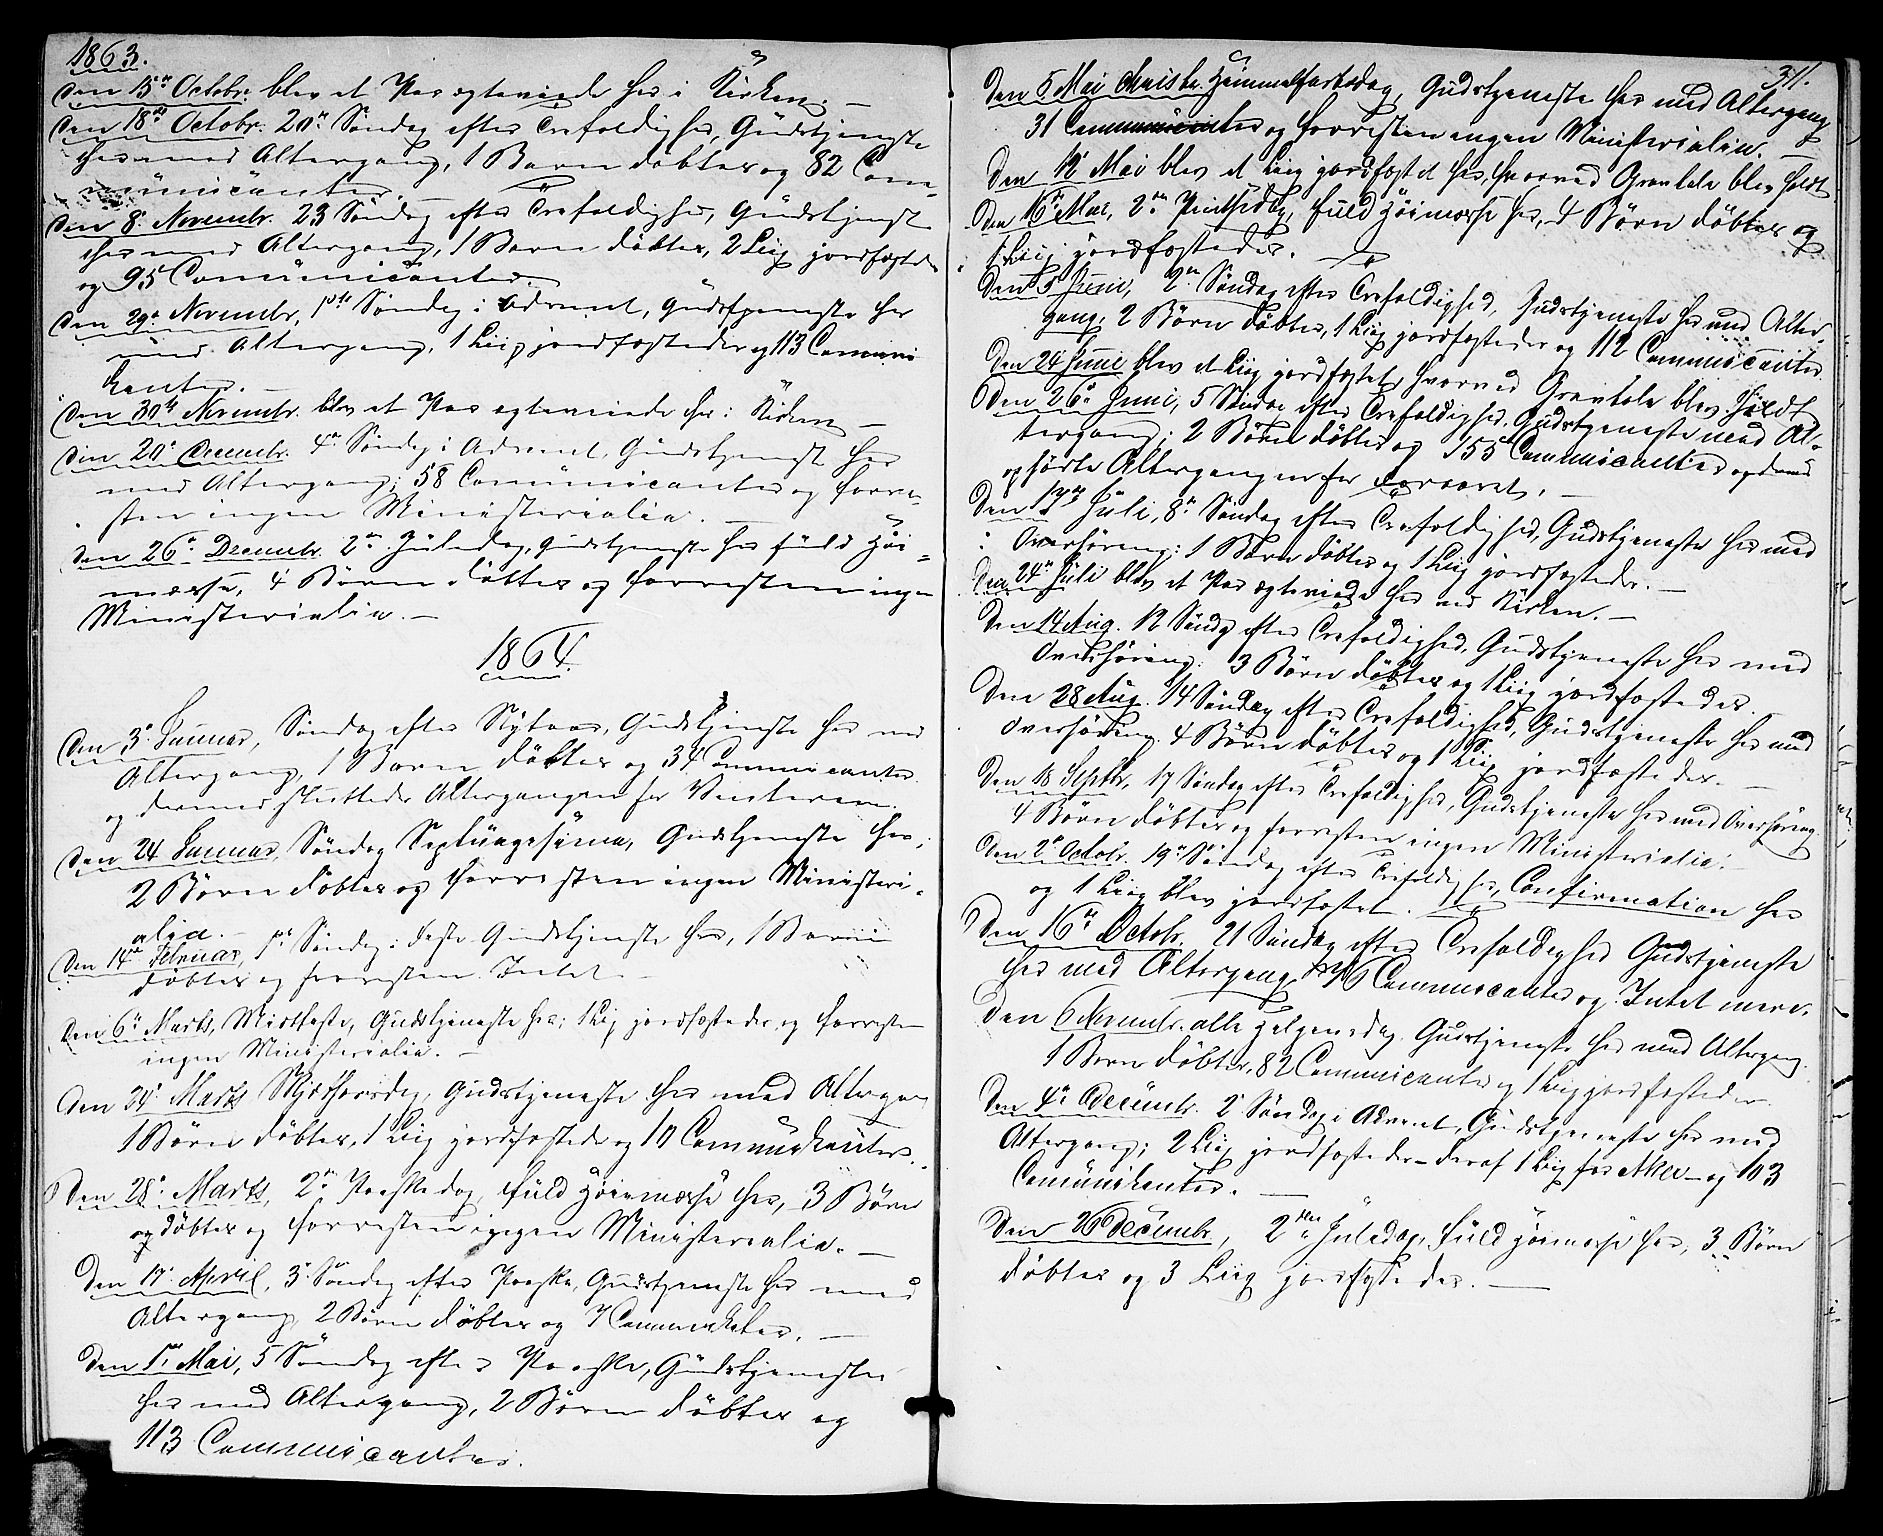 1863.
Den 15de Octobr. blev et Par ægteviede her i Kirken. —
Den 18de Octobr. 20de Søndag efter Trefoldighed, Gudstjeneste
her med Altergang, 1 Barn døbtes og 82 Com-
municanter. —
Den 8de Novembr. 23 Søndag efter Trefoldighed, Gudstjenest
her med Altergang, 1 Barn døbtes, 2 Liig jordfæstedes
og 95 Comunicanter.
Den 29de Novembr, 1ste Søndag i Advent, Gudstjeneste her
med Altergang, 1 Liig jordfæstedes og 113 Comuni
kanter. —
Den 30te Novembr. blev et Par ægteviede her i Kirken —
Den 20de Decembr. 4de Søndag i Advent, Gudstjenest her
med Altergang; 58 Comunicanter og forre-
sten ingen Ministerialia. —
Den 26de Decembr. 2den Juledag, Gudstjeneste her fuld Høi-
messe, 4 Børn døbtes og forresten ingen
Ministerialia. —
1864.
Den 3de Januar, Søndag efter Nytaar, Gudstjeneste her med
Altergang, 1 Barn døbtes og 34 Communicanter
og dermed sluttedes Altergangen for Vinteren.
Den 24 Januar, Søndag Septuagesima, Gudstjeneste her,
2 Børn døbtes og forresten ingen Ministeri-
alia. —
Den 14de Februar, 1ste Søndag i Faste Gudstjeneste her, 1 Barn
døbtes og forresten Intet. —
Den 6te Marts, Midtfaste, Gudstjeneste her; 1 Liig jordfæstedes og forresten
ingen Ministerialia. —
Den 24de Marts Skjærthorsdag, Gudstjeneste her med Altergang
1 Børn døbtes, 1 Liig jordfæstedes og 10 Communikanter.
Den 28de Marts, 2den Paaskedag, fuld Høimesse her, 3 Børn
og døbtes og forresten ingen Ministerialia. —
Den 17de April, 3de Søndag efter Paaske, Gudstjeneste her med
Altergang, 2 Børn døbtes og 7 Communikanter. —
Den 1ste Mai, 5 Søndag efter Paaske, Gudstjeneste
her med Altergang, 2 Børn døbtes og
113 Communicanter.
311.
Den 5 Mai Christi Himmelfartsdag, Gudstjeneste her med Altergang
31 Communicanter og forresten ingen Ministerialia. —
Den 12 Mai blev et Liig jordfæstet her, hvorved Gravtale blev holdt
Den 16de Mai, 2den Pintsedag, fuld Høimesse her, 4 Børn døbtes og
1 Liig jordfæstedes. —
Den 5 Juni, 2den Søndag efter Trefoldighed, Gudstjeneste her med Alter-
gang, 2 Børn døbtes, 1 Liig jordfæstedes og 112 Communicanter
Den 24 Juni blev et Liig jordfæstet, hvorved Gravtale blev holdt
Den 26de Juni, 5 Søndag efter Trefoldighed, Gudstjeneste med Al-
tergang; 2 Børn døbtes og 155 Communicanter og dermed
ophørte Altergangen for Foraaret. —
Den 17de Juli, 8de Søndag efter Trefoldighed, Gudstjeneste her med
Overhøring; 1 Barn døbtes og 1 Liig jordfæstedes. —
Den 24de Juli blev et Par ægteviede her ved Kirken. —
Den 14 Aug. 12 Søndag efter Trefoldighed, Gudstjeneste her med
Overhøring. 3 Børn døbtes og 1 Liig jordfæstedes. —
Den 28 Aug. 14 Søndag efter Trefoldighed, Gudstjeneste her med
Overhøring. 4 Børn døbtes og 1 Liig jordfæstedes. —
Den 18 Septbr, 17 Søndag efter Trefoldighed, Gudstjeneste her med Overhøring.
4 Børn døbtes og forresten ingen Ministerialia. —
Den 2de Octobr. 19de Søndag efter Trefoldighed, Confirmation her
og 1 Liig blev jordfæstet. —
Den 16de Octobr. 21 Søndag efter Trefoldighed Gudstjeneste
her med Altergang, 76 Communicanter og Intet mere.
Den 6 Novembr. alle Helgensdag. Gudstjeneste her med Altergang.
1 Barn døbtes, 82 Communicanter og 1 Liig jordfæstedes.
Den 4de Decembr. 2 Søndag i Advent, Gudstjeneste her med
Altergang; 2 Liig jordfæstedes – deraf 1 Liig for Aker – og 103
Comunikanter. —
Den 26 Decembr, 2den Juledag, fuld Høimesse her, 3 Børn
døbtes og 3 Liig jordfæstedes. —